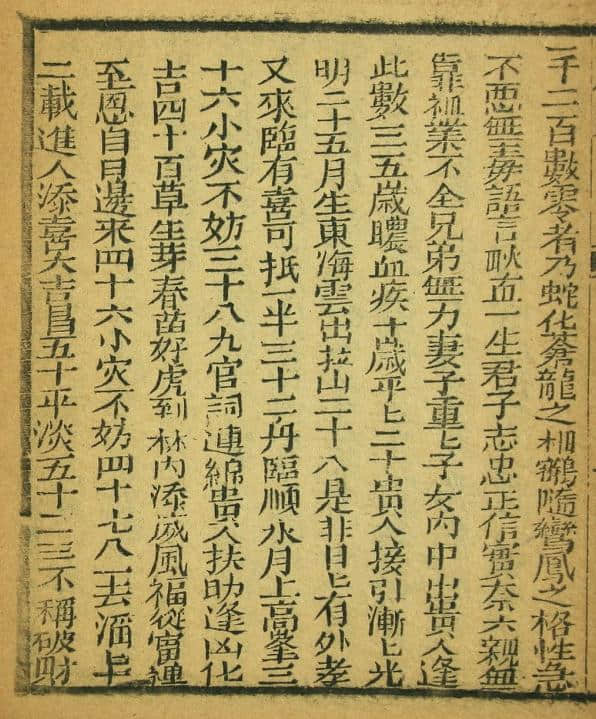 一千二百數零者乃蛇化蒼龍之相鶴隨鸞鳳之格性急
不惡無毒語言耿直一生君子志忠正信實奈六親無
靠祖業不全兄弟無力妻子重上子女內中出貴人逢
此數三五歲膿血疾十歲平上二十貴人接引漸上光
明二十五月生東海雲出拉山二十八是非日上有外孝
又來臨有喜可抵一半三十二舟臨順水月上高峯三
十六小灾不妨三十八九官詞連綿貴人扶助逢凶化
吉四十百草生芽春苗好虎到林內添威風福從富
至恩自日邊來四十六小灾不妨四十七八一去湢上
二載進人添喜大吉昌五十平淡五十二三不稱破財